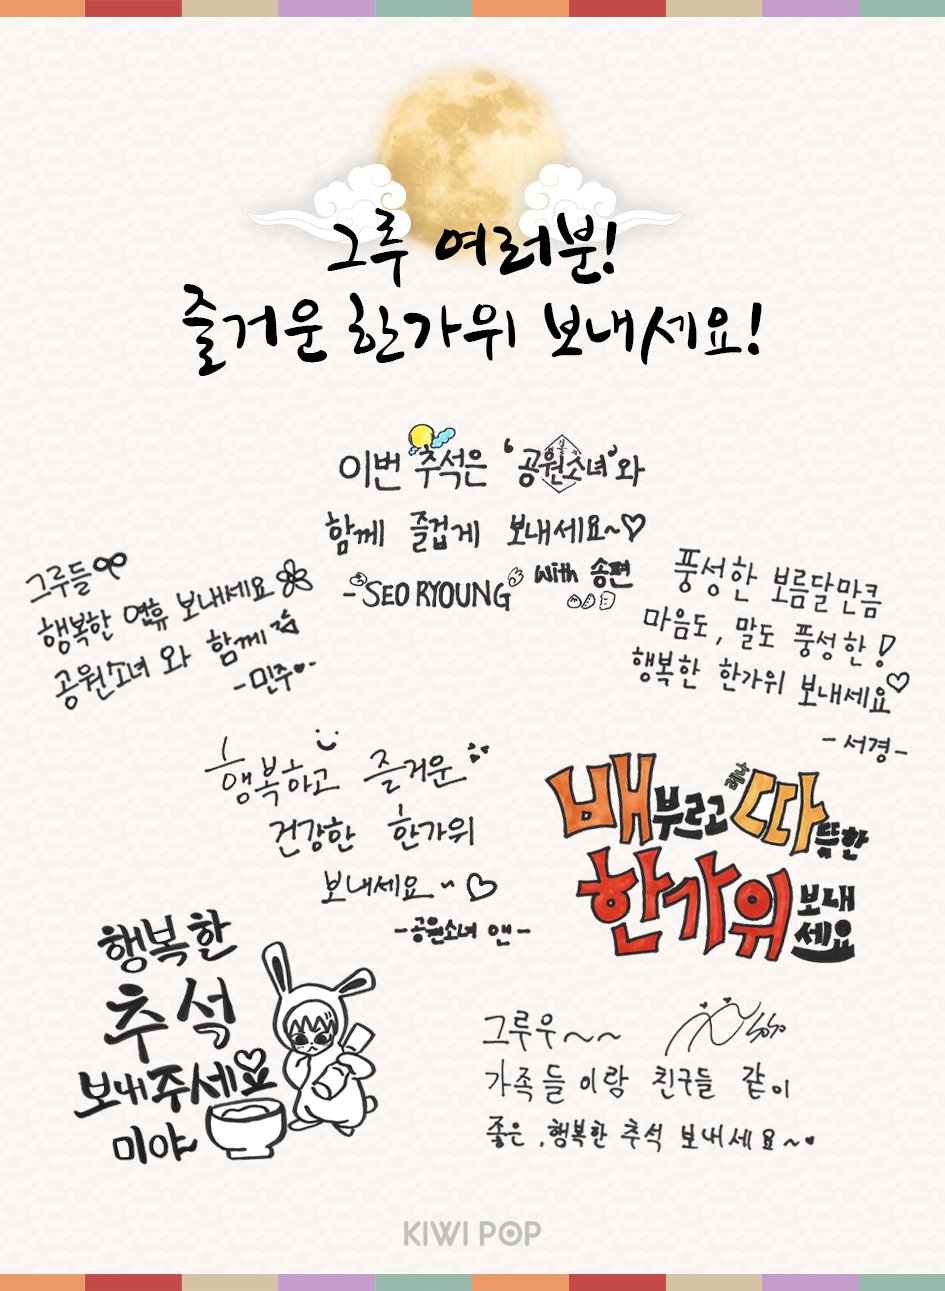 그루 여러분!
즐거운 한가위 보내세요!
이번 추석은 '공원소녀'와
함께 즐겁게 보내세요~♡
-SEO RYOUNG with 송편
그루들
행복한 연휴 보내세요
공원소녀 와 함께
-민주♥-
풍성한 보름달만큼
마음도, 말도 풍성한!
행복한 한가위 보내세요♡
-서경-
행복하고 즐거운
건강한 한가위
보내세요~♡
-공원소녀 앤-
배부르고 레나 따뜻한
한가위 보내
세요
행복한
추석
보내주세요♡
미야
그루우~~ SoSo
가족들이랑 친구들 같이
좋은, 행복한 추석 보내세요~♥
KIWI POP